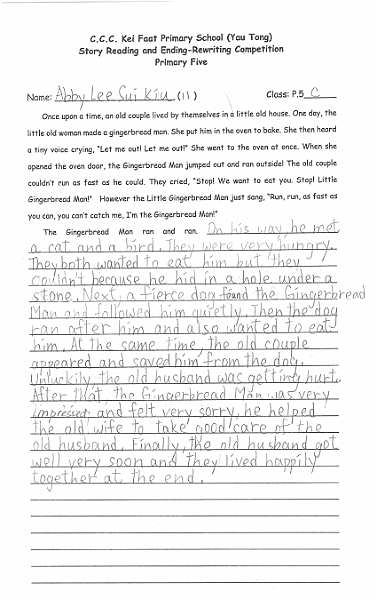 C.C.C. Kei Faat Primary School (Yau Tong)
Story Reading and Ending-Rewriting Competition
Primary Five
Name: Abby Lee Sui Kiu (11) Class: P.5 C
Once upon a time, an old couple lived by themselves in a little old house. One day, the
little old woman made a gingerbread man. She put him in the oven to bake. She then heard
a tiny voice crying, "Let me out! Let me out!" She went to the oven at once. When she
opened the oven door, the Gingerbread Man jumped out and ran outside! The old couple
couldn't run as fast as he could. They cried, "Stop! We want to eat you. Stop! Little
Gingerbread Man!" However the Little Gingerbread Man just sang, "Run, run, as fast as
you can, you can't catch me, I'm the Gingerbread Man!"
The Gingerbread Man ran and ran. On his way he met
a cat and a bird. They were very hungry.
They both wanted to eat him but they
couldn't because he hid in a hole under a
stone. Next, a fierce dog found the Gingerbread
Man and followed him quietly. Then the dog
ran after him and also wanted to eat
him. At the same time, the old couple
appeared and saved him from the dog.
Unluckily, the old husband was getting hurt.
After that, the Gingerbread Man was very
impressed and felt very sorry, he helped
the old wife to take good care of the
old husband. Finally, the old husband got
well very soon and they lived happily
together at the end.